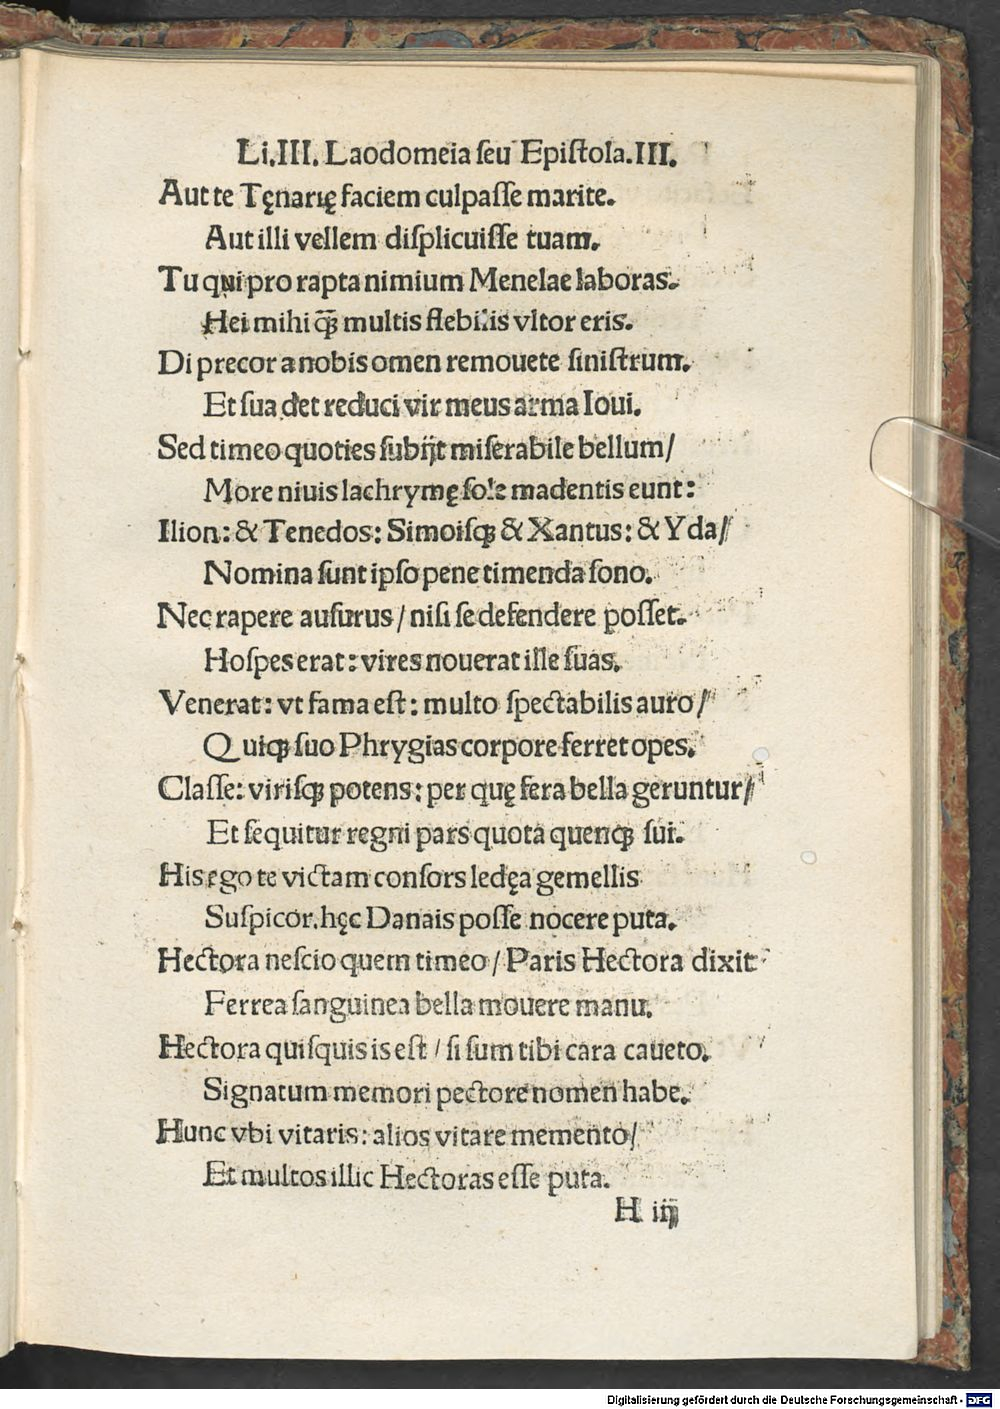 Li.III. Laodomeia seu Epistola.III.
Aut te Tęnarię faciem culpasse marite.
Aut illi vellem displicuisse tuam.
Tu qui pro rapta nimium Menelae laboras.
Hei mihi qꝫ̄ multis flebilis vltor eris.
Di precor a nobis omen remouete sinistrum.
Et sua det reduci vir meus arma Ioui.
Sed timeo quoties subijt miserabile bellum/
More niuis lachrymę sole madentis eunt:
Ilion: & Tenedos: Simoisqꝫ & Xantus: & Yda/
Nomina sunt ipso pene timenda sono.
Nec rapere ausurus/ nisi se defendere posset.
Hospes erat: vires nouerat ille suas.
Venerat: vt fama est: multo spectabilis auro/
Quiqꝫ suo Phrygias corpore ferret opes.
Classe: virisqꝫ potens: per quę fera bella geruntur/
Et sequitur regni pars quota quenqꝫ sui.
His ego te victam consors ledęa gemellis
Suspicor. hęc Danais posse nocere puta.
Hectora nescio quem timeo/ Paris Hectora dixit
Ferrea sanguinea bella mouere manu.
Hectora quisquis is est/ si sum tibi cara caueto.
Signatum memori pectore nomen habe.
Hunc vbi vitaris: alios vitare memento/
Et multos illic Hectoras esse puta.
H iiij
Digitalisierung gefördert durch die Deutsche Forschungsgemeinschaft - DFG